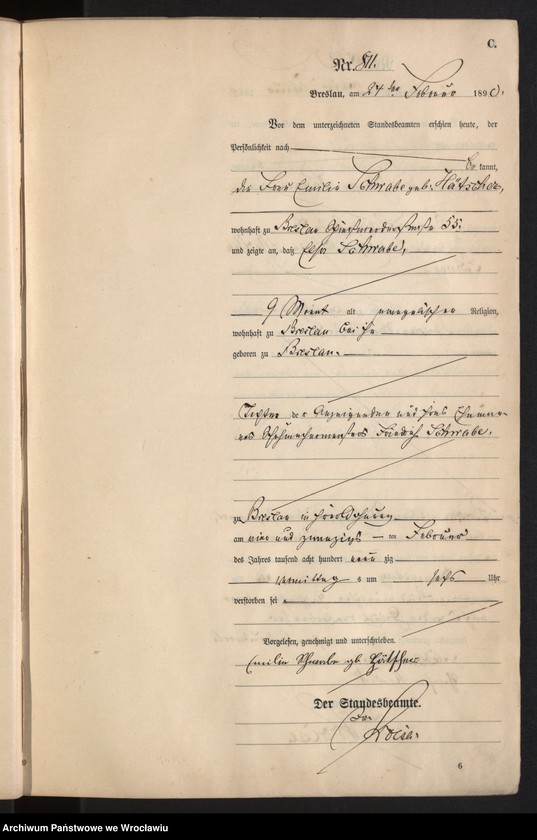 C.
Nr. 811.
Breslau, am 24 ten Februar 1890.
Vor dem unterzeichneten Standesbeamten erschien heute, der
Persönlichkeit nach
be kannt,
die Frau Emilie Schwabe geb.
wohnhaft zu Breslau 55.
und zeigte an, daß Schwabe,
9 Monat alt evangelischer Religion,
wohnhaft zu Breslau bei ihr
geboren zu Breslau.
Tochter der Anzeigenden und ihres Ehemannes
Schwabe.
zu Breslau in
am vier und zwanzigsten Februar
des Jahres tausend acht hundert neun zig
Vormittag s um sechs Uhr
verstorben sei
Vorgelesen, genehmigt und unterschrieben.
Emilie Schwabe gb.
Der Standesbeamte.
6
Archiwum Państwowe we Wrocławiu